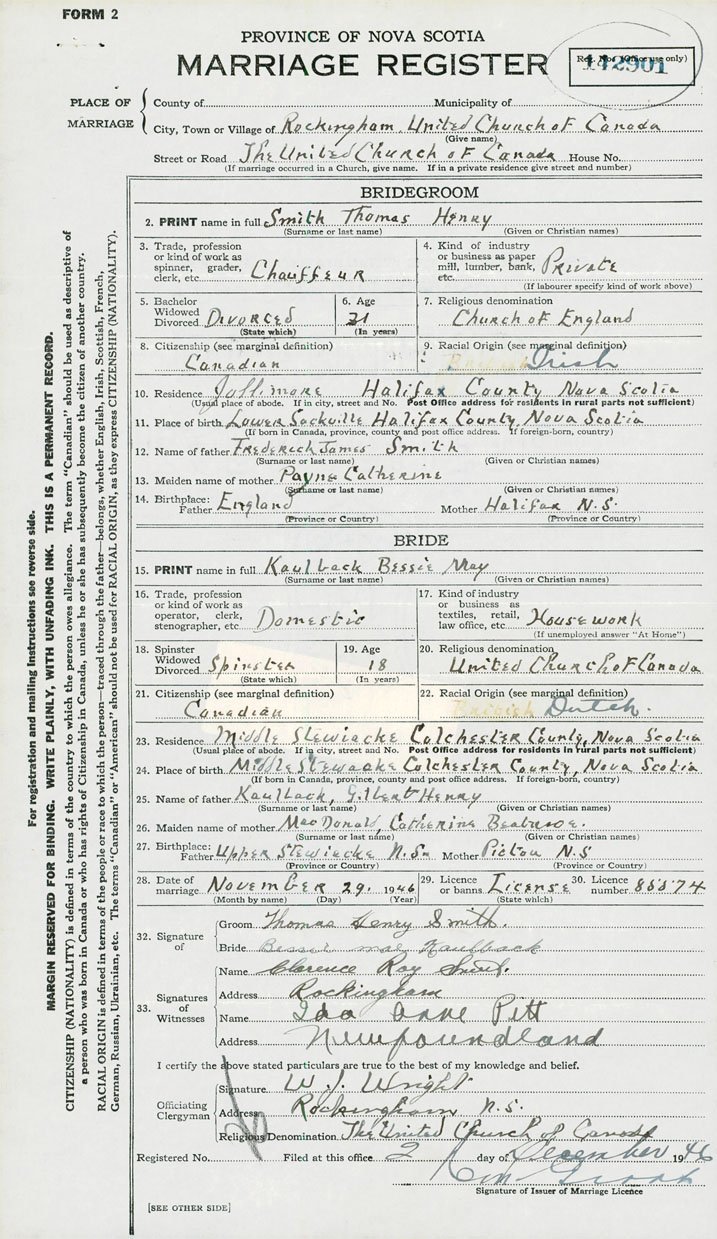 FORM 2
PROVINCE OF NOVA SCOTIA
MARRIAGE REGISTER
Reg. No. (Office use only)
142901
PLACE OF MARRIAGE
County of Municipality of
City, Town or Village of Rockingham United Church of Canada
(Give name)
Street or Road The United Church of Canada House No.
(If marriage occurred in a Church, give name. If in a private residence give street and number)
BRIDEGROOM
2. PRINT name in full Smith Thomas Henry
(Surname or last name) (Given or Christian names)
3. Trade, profession or kind of work as spinner, grader, clerk, etc. Chauffeur
4. Kind of industry or business as paper mill, lumber, bank, etc. Private
(If labourer specify kind of work above)
5. Bachelor Widowed Divorced Divorced
(State which)
6. Age 31
(In years)
7. Religious denomination
Church of England
8. Citizenship (see marginal definition)
Canadian
9. Racial Origin (see marginal definition)
Irish
10. Residence Jollimore Halifax County Nova Scotia
(Usual place of abode. If in city, street and No. Post Office address for residents in rural parts not sufficient)
11. Place of birth Lower Sackville Halifax County, Nova Scotia
(If born in Canada, province, county and post office address. If foreign-born, country)
12. Name of father Frederick James Smith
(Surname or last name) (Given or Christian names)
13. Maiden name of mother Payne Catherine
(Surname or last name) (Given or Christian names)
14. Birthplace: Father England Mother Halifax N.S.
(Province or Country) (Province or Country)
BRIDE
15. PRINT name in full Kaulback Bessie May
(Surname or last name) (Given or Christian names)
16. Trade, profession or kind of work as operator, clerk, stenographer, etc. Domestic
17. Kind of industry or business as textiles, retail, law office, etc. Housework
(If unemployed answer "At Home")
18. Spinster Widowed Divorced Spinster
(State which)
19. Age 18
(In years)
20. Religious denomination
United Church of Canada
21. Citizenship (see marginal definition)
Canadian
22. Racial Origin (see marginal definition)
British Dutch.
23. Residence Middle Stewiacke Colchester County, Nova Scotia
(Usual place of abode. If in city, street and No. Post Office address for residents in rural parts not sufficient)
24. Place of birth Middle Stewiacke Colchester County, Nova Scotia
(If born in Canada, province, county and post office address. If foreign-born, country)
25. Name of father Kaulback, Gilbert Henry
(Surname or last name) (Given or Christian names)
26. Maiden name of mother MacDonald, Catherine
(Surname or last name) (Given or Christian names)
27. Birthplace: Father Upper Stewiacke N.S. Mother Pictou N.S
(Province or Country) (Province or Country)
28. Date of marriage November 29. 1946
(Month by name) (Day) (Year)
29. Licence or banns License
(State which)
30. Licence number 85574
32. Signature of
Groom Thomas Henry Smith.
Bride Bessie May Kaulback
33. Signatures of Witnesses
Name Clarence Roy
Address Rockingham
Name Ida Anne Pitt
Address Newfoundland
I certify the above stated particulars are true to the best of my knowledge and belief.
Officiating Clergyman
Signature W. J. Wright
Address Rockingham N.S.
Religious Denomination The United Church of Canada
Registered No. Filed at this office 2 day of December 1946
Signature of Issuer of Marriage Licence
[SEE OTHER SIDE]
For registration and mailing instructions see reverse side.
MARGIN RESERVED FOR BINDING. WRITE PLAINLY, WITH UNFADING INK. THIS IS A PERMANENT RECORD.
CITIZENSHIP (NATIONALITY) is defined in terms of the country to which the person owes allegiance. The term "Canadian" should be used as descriptive of
a person who was born in Canada or who has rights of Citizenship in Canada, unless he or she has subsequently become the citizen of another country.
RACIAL ORIGIN is defined in terms of the people or race to which the person—traced through the father—belongs, whether English, Irish, Scottish, French,
German, Russian, Ukrainian, etc. The terms "Canadian" or "American" should not be used for RACIAL ORIGIN, as they express CITIZENSHIP (NATIONALITY).